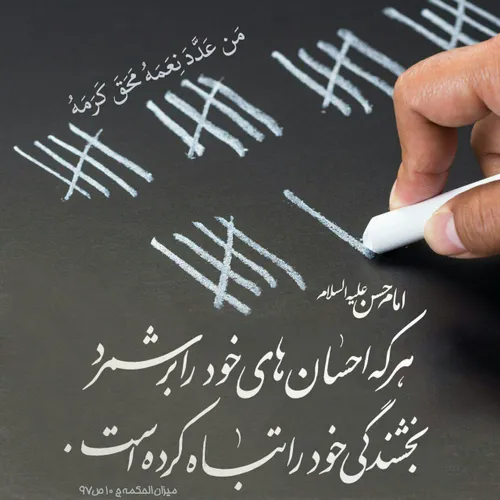 مَن عَدَّدَ نِعَمَهُ مَحَقَ كَرَمَهُ
امام حسن علیه السلام
هرکه احسان های خود را برشمرد
بخشندگی خود را تباه کرده است.
میزان الحکمه ج ۱۰ ص ۹۷